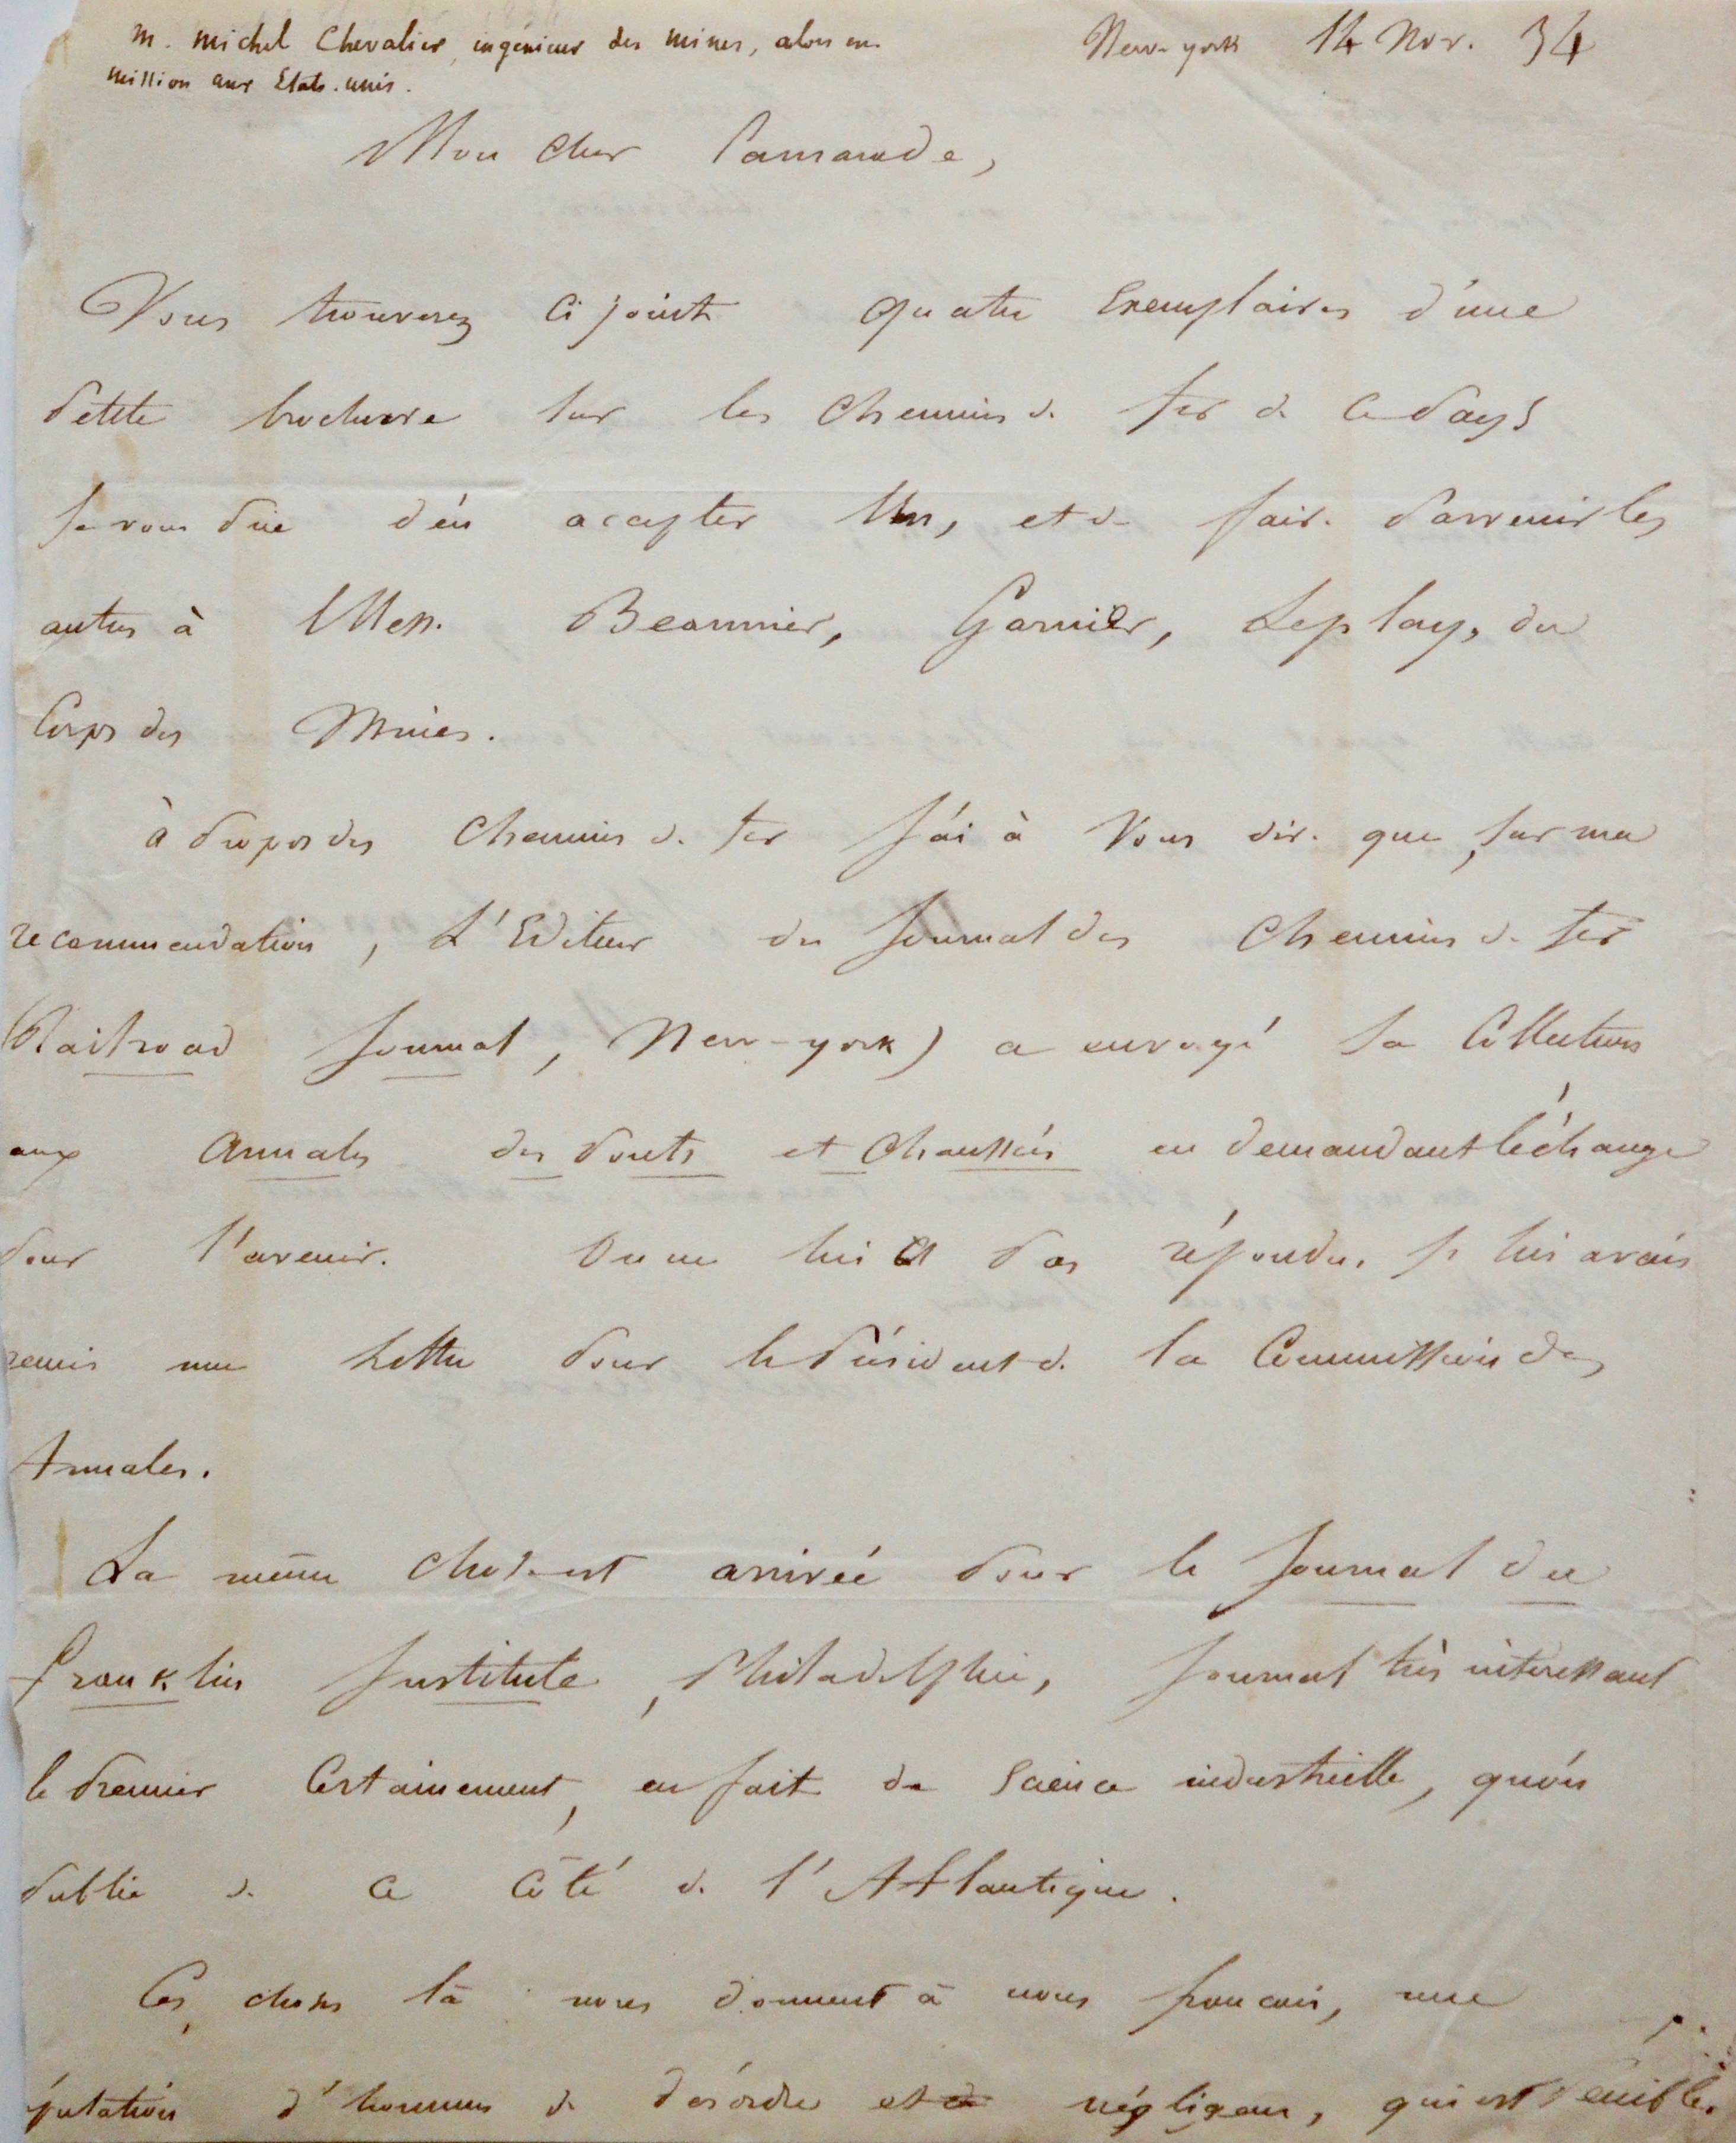 M. Michel Chevalier, ingénieur des mines, alors en
mission aux Etats-unis.
New-york 14 Nov. 34
Mon cher Camarade,
Vous trouverez ci joint quatre Exemplaires d'une
petite brochure sur les chemins de fer de ce pays
Je vous prie d'en accepter un, et de faire parvenir les
autres à Mess. Beaunier, Garnier, Leplay, du
Corps des Mines.
à propos des chemins de fer j'ai à vous dire que, sur ma
recommendation, L'Editeur du Journal des chemins de fer
(Railroad Journal, New-york) a envoyé sa Collection
aux Annales des Ponts et Chaussées en demandant l'échange
pour l'avenir. On ne lui a pas répondu. Je lui avais
remis une lettre pour le Président de la Commission des
Annales.
La même chose est arrivée pour le Journal du
Franklin Institute, Philadelphie, Journal très intéressant
le premier certainement, en fait de science industrielle, qu'on
publie de ce côté de l'Atlantique.
Ces choses là nous donnent à nous francais, une
réputation d'hommes de désordre et de négligence, qui est pénible.